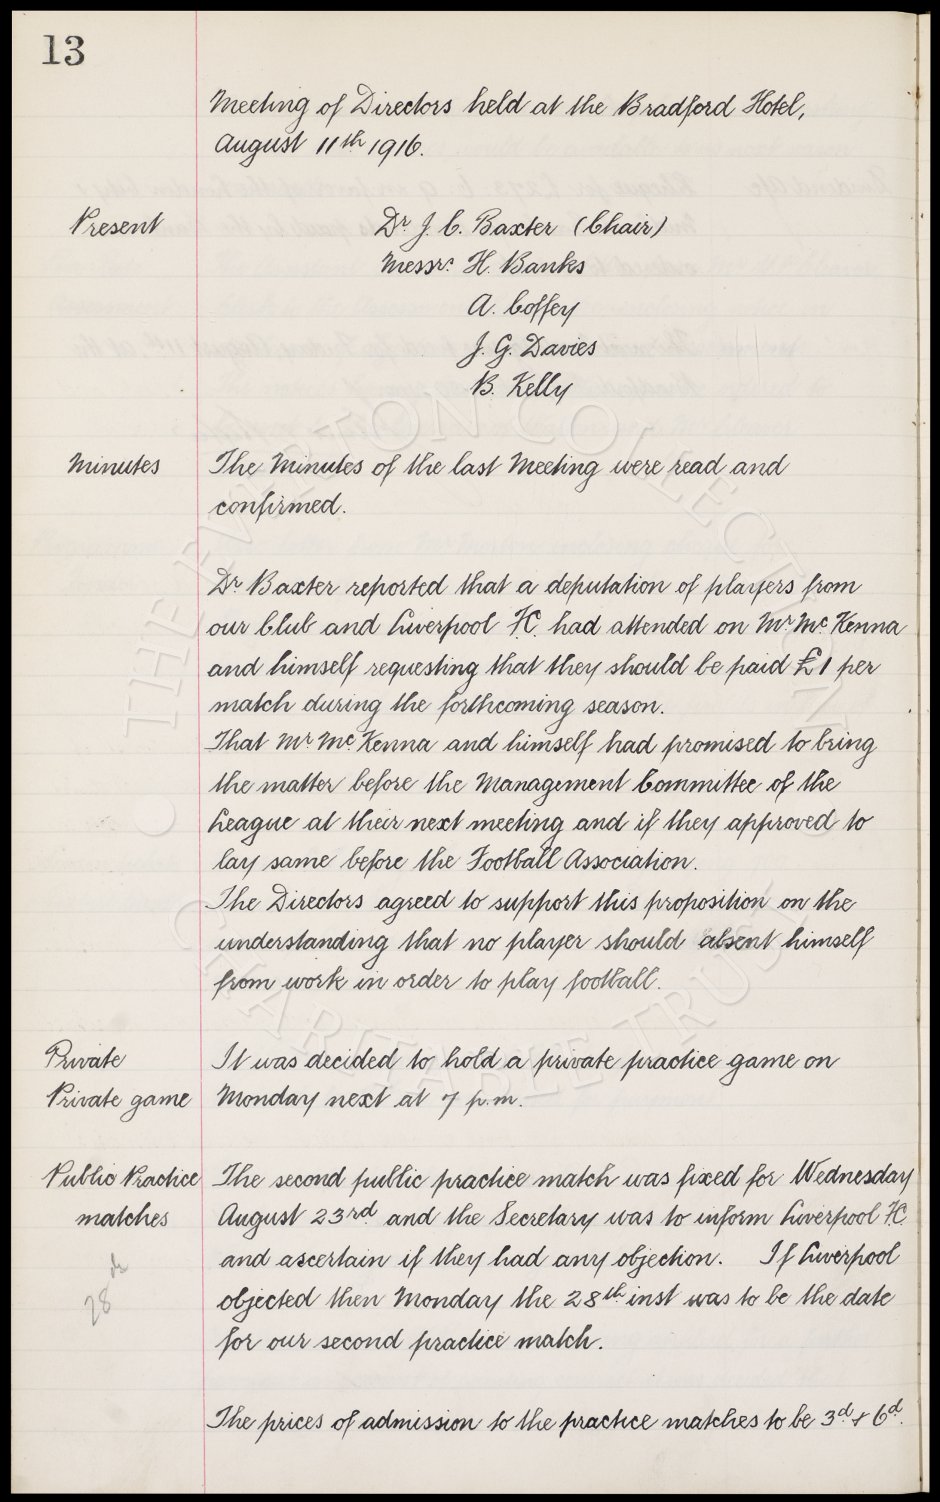 13
Meeting of Directors held at the Bradford Hotel,
August 11th 1916.
Present
Dr J. C. Baxter (Chair)
Messrs H. Banks
A. Coffey
J. G. Davies
B. Kelly
Minutes
The Minutes of the last Meeting were read and
confirmed.
Dr Baxter reported that a deputation of players from
our Club and Liverpool F.C. had attended on Mr McKenna
and himself requesting that they should be paid £1 per
match during the forthcoming season.
That Mr McKenna and himself had promised to bring
the matter before the Management Committee of the
League at their next meeting and if they approved to
lay same before the Football Association.
The Directors agreed to support this proposition on the
understanding that no player should absent himself
from work in order to play football.
Private
Private game
It was decided to hold a private practice game on
Monday next at 7 p.m.
Public Practice
matches
The second public practice match was fixed for Wednesday
August 23rd and the Secretary was to inform Liverpool F.C.
and ascertain if they had any objection. If Liverpool
objected then Monday the 28th inst was to be the date
for our second practice match.
28
The prices of admission to the practice matches to be 3d & 6d.
THE EVERTON COLLECTION
CHARITABLE TRUST